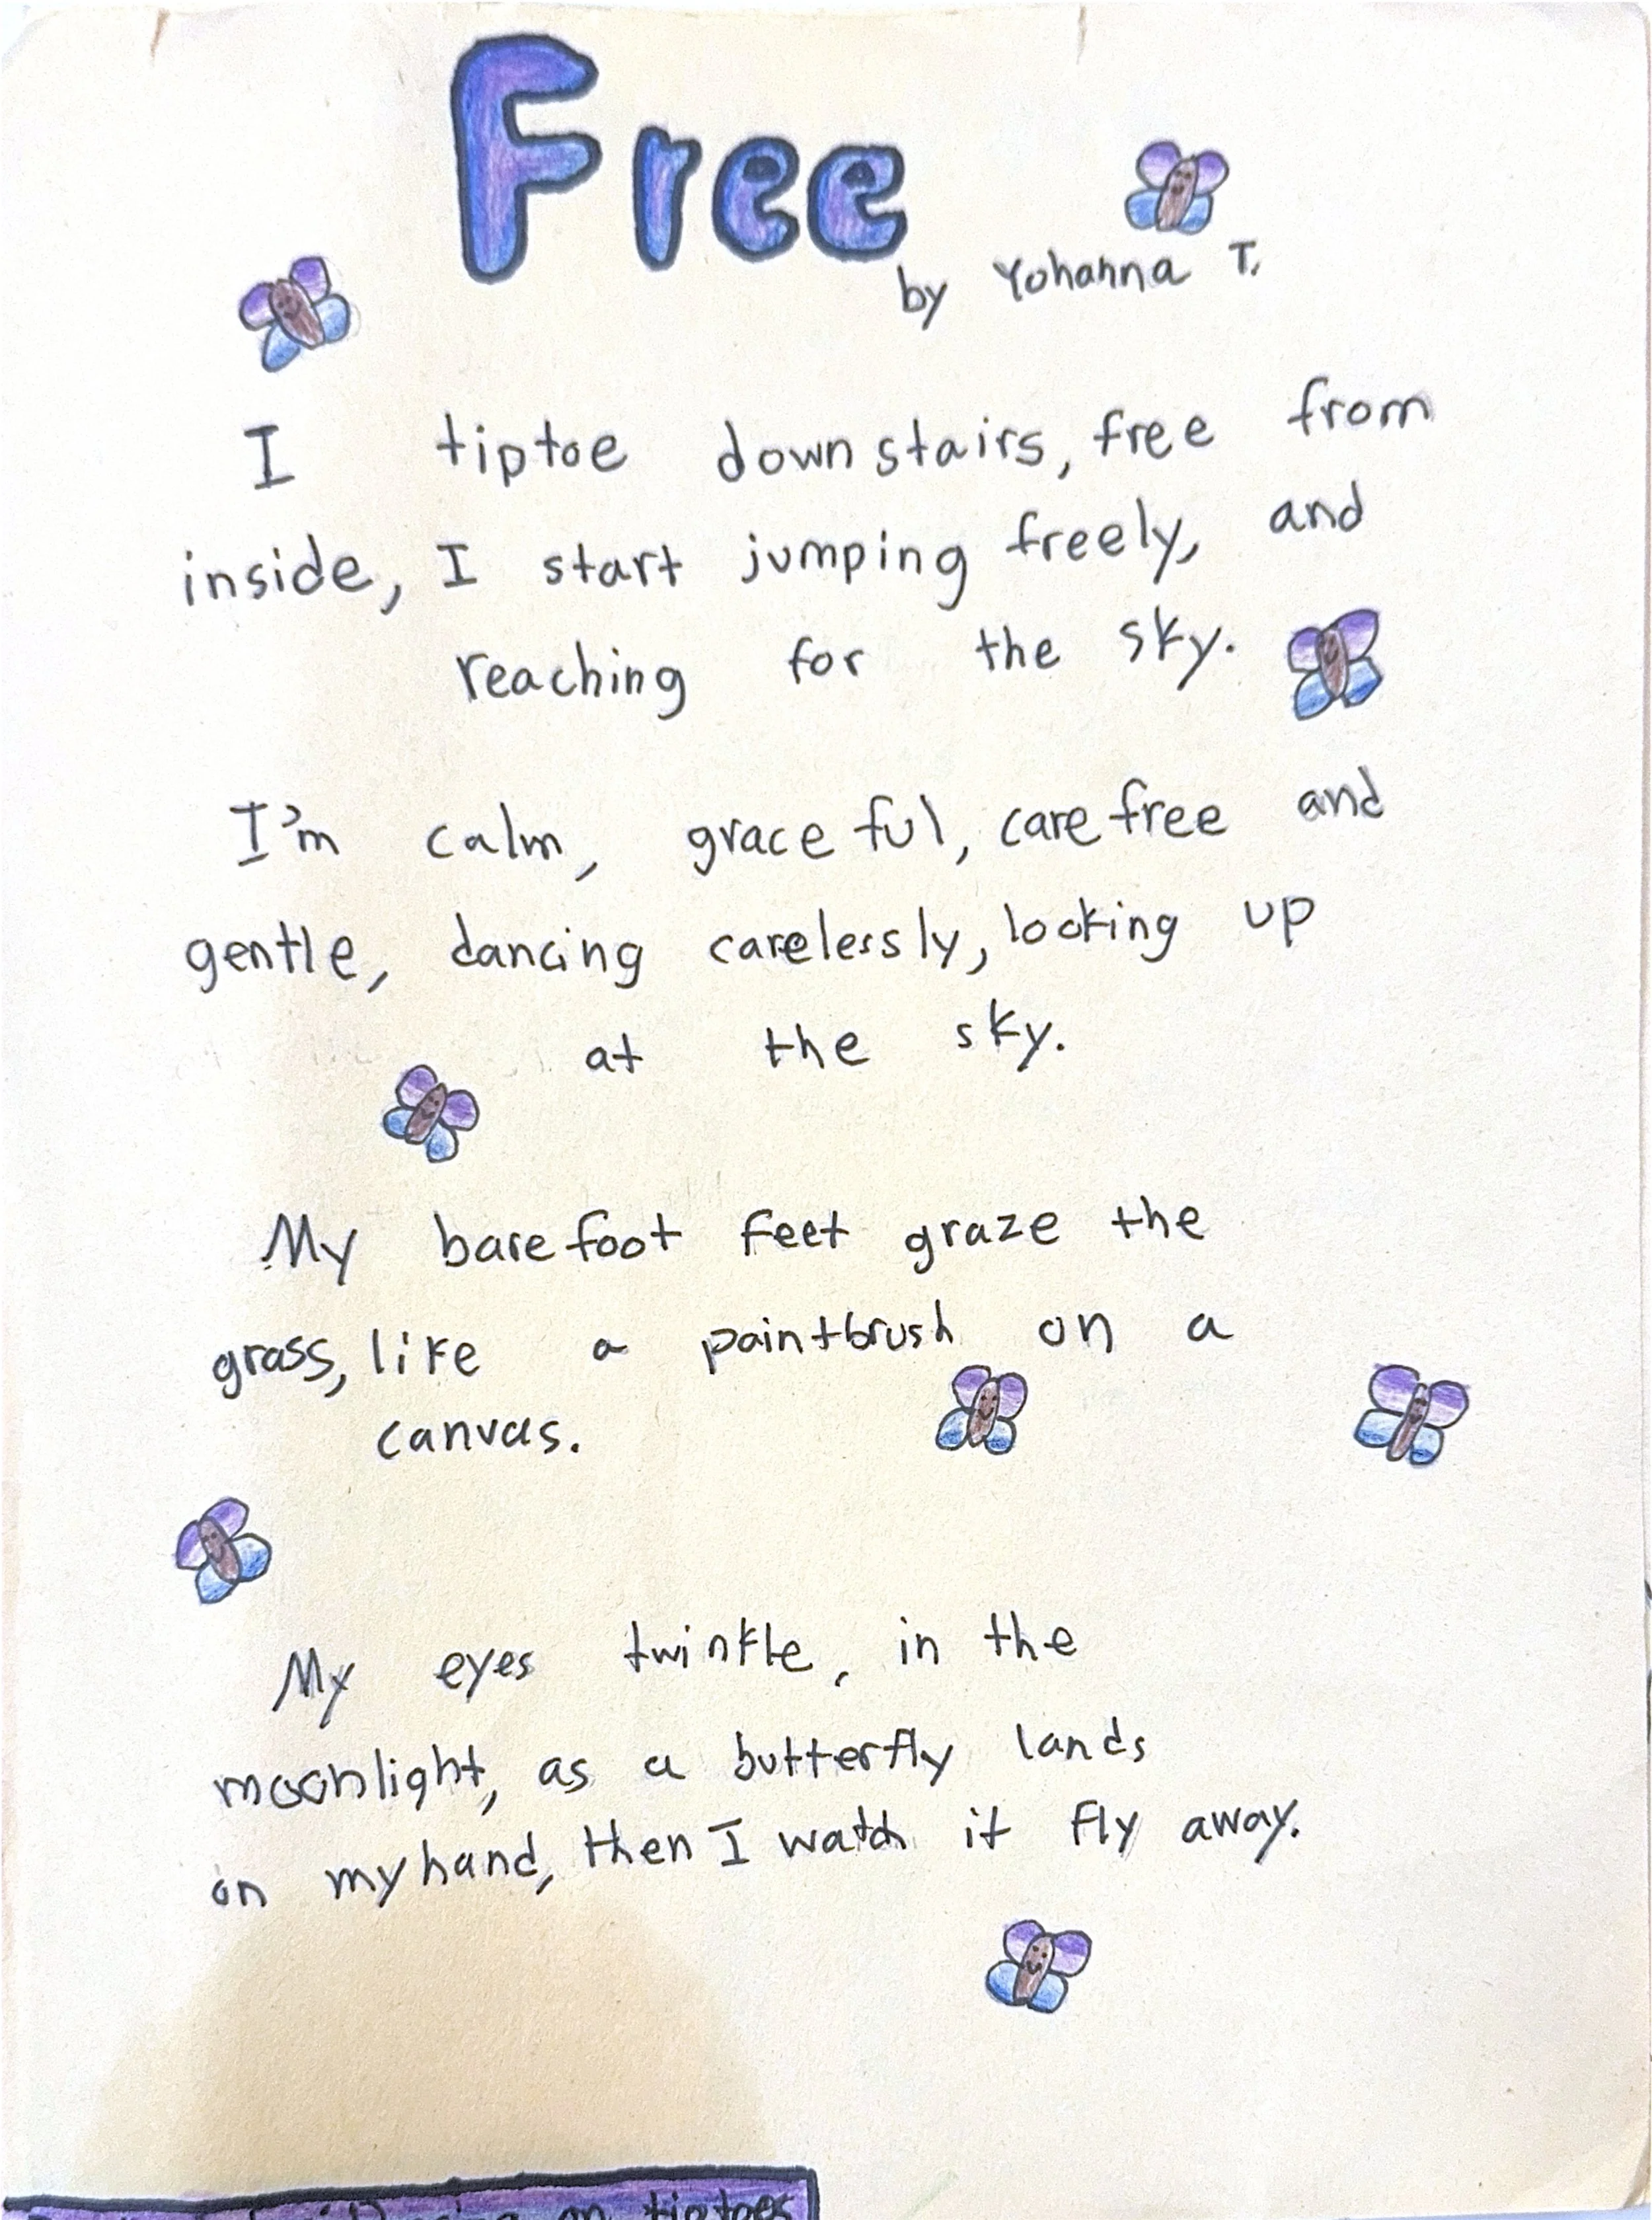 Free
by Yohanna T.
I tiptoe downstairs, free from
inside, I start jumping freely, and
reaching for the sky.
I'm calm, graceful, carefree and
gentle, dancing carelessly, looking up
at the sky.
My barefoot feet graze the
grass, like a paintbrush on a
canvas.
My eyes twinkle, in the
moonlight, as a butterfly lands
on my hand, then I watch it fly away.
on tiptoes